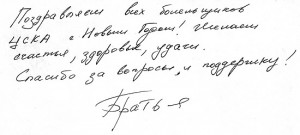 Поздравляем всех болельщиков
ЦСКА с Новым Годом! Желаем
счастья, здоровья, удачи.
Спасибо за вопросы и поддержку!
Братья